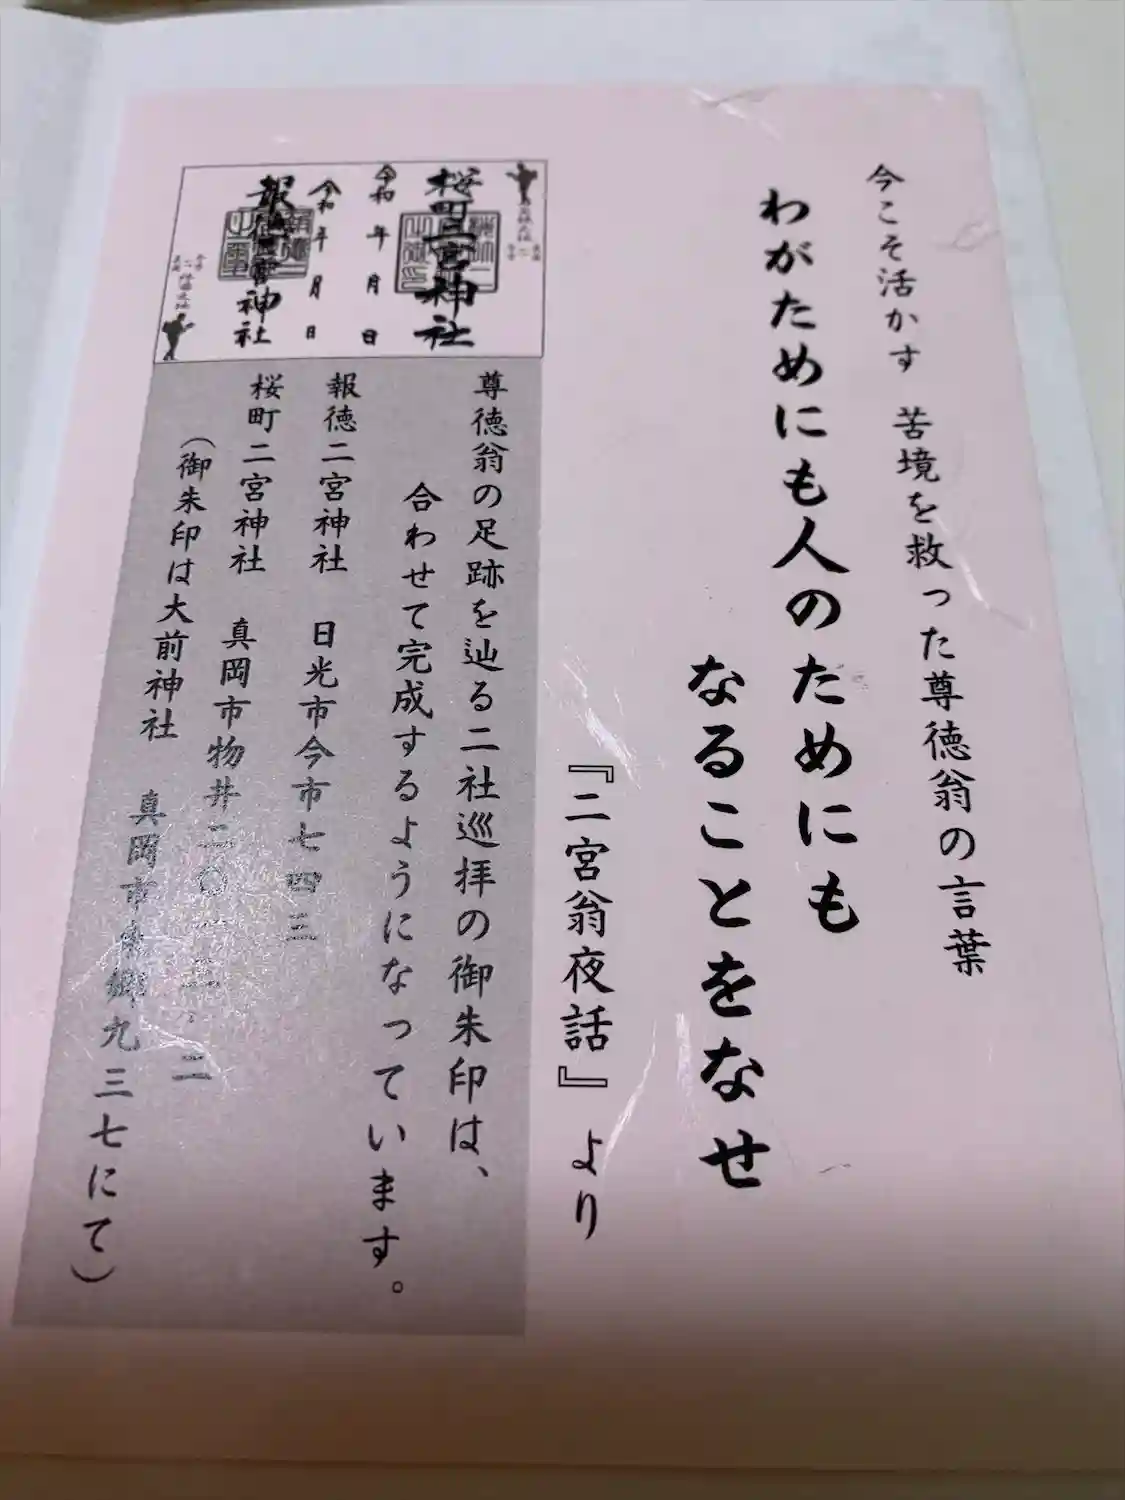 今こそ活かす 苦境を救った尊徳翁の言葉
わがためにも人のためにも
なることをなせ
『二宮翁夜話』より
桜町二宮神社
令和 年 月 日
令和 年 月 日
報徳二宮神社
尊徳翁の足跡を辿る二社巡拝の御朱印は、
合わせて完成するようになっています。
報徳二宮神社 日光市今市七四三
桜町二宮神社 真岡市物井二〇 二
(御朱印は大前神社 真岡市東郷九三七にて)